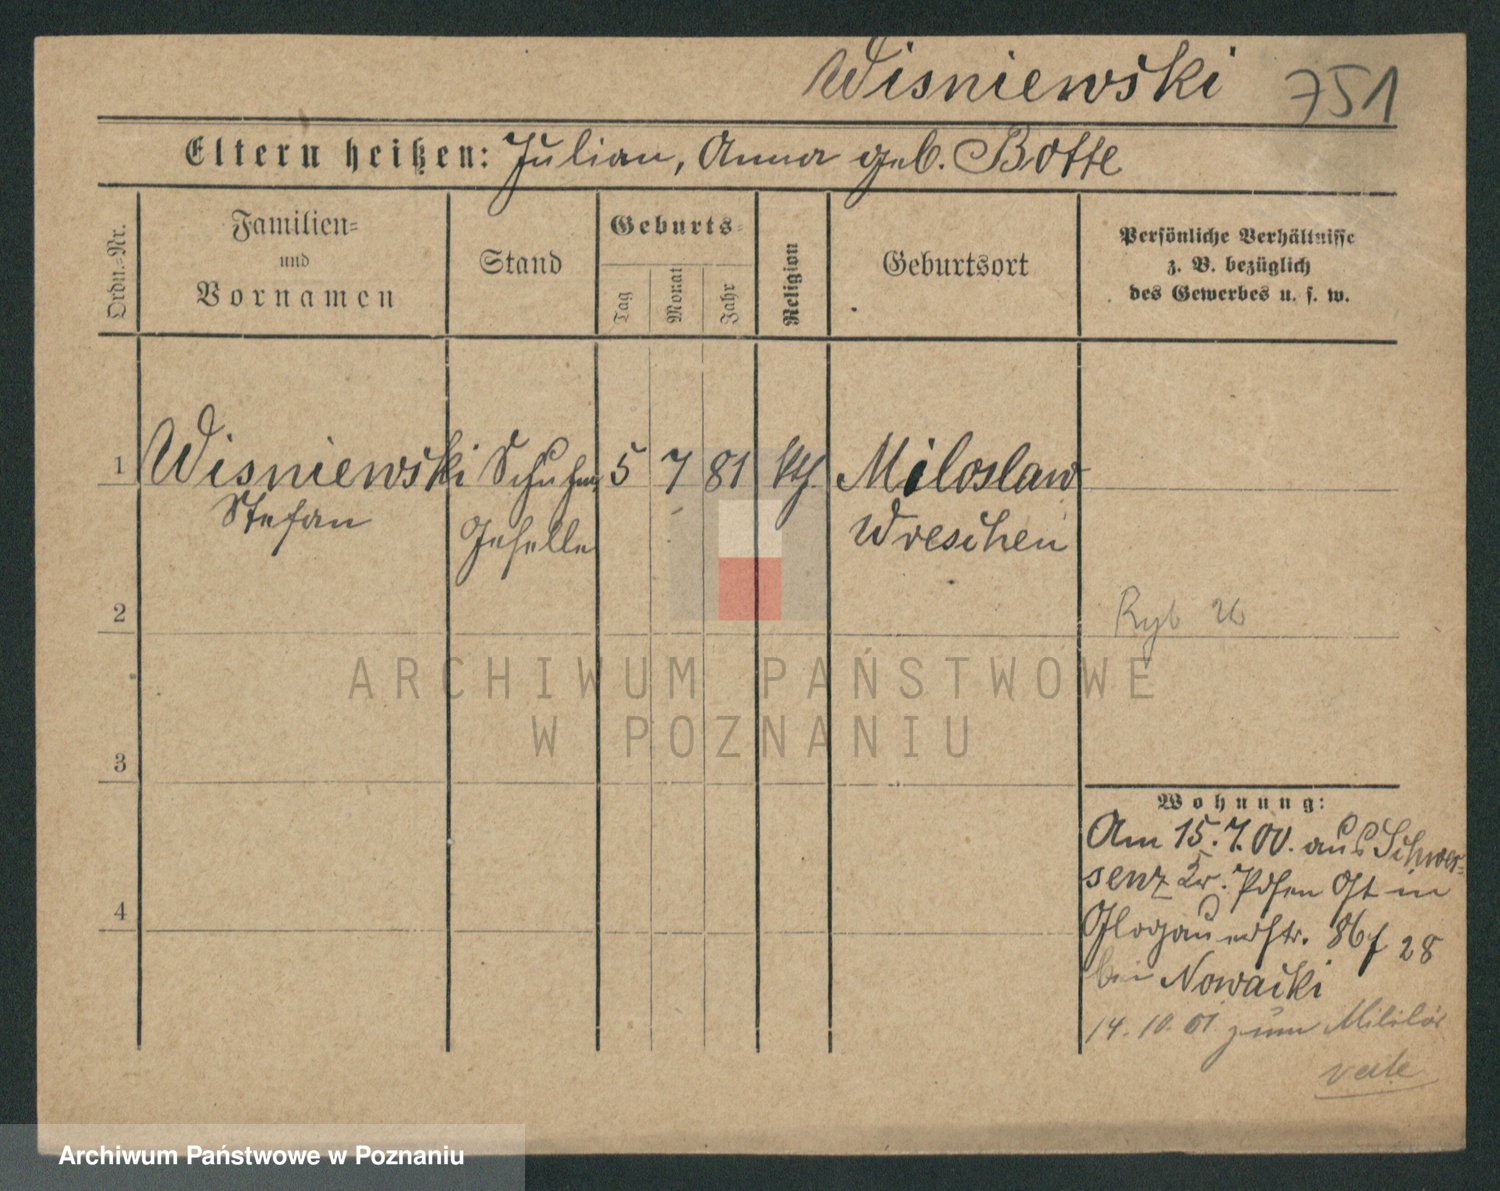 Wisniewski 751
Eltern heißen: Julian, Anna geb. Botte
Ordn.-Nr.
Familien-
und
Vornamen
Stand
Geburts-
Tag
Monat
Jahr
Religion
Geburtsort
Persönliche Verhältnisse
z. B. bezüglich
des Gewerbes u. s. w.
1 Wisniewski Schuhm. 5 7 81 kth. Miloslaw
Stefan Geselle Wreschen
2
3
4
Wohnung:
Am 15.7.00. aus Schwer-
senz Kr. Posen Ost in
Glogauerstr. 28
bei Nowacki
14.10.01 zum Militär
ARCHIWUM PAŃSTWOWE
W POZNANIU
Archiwum Państwowe w Poznaniu